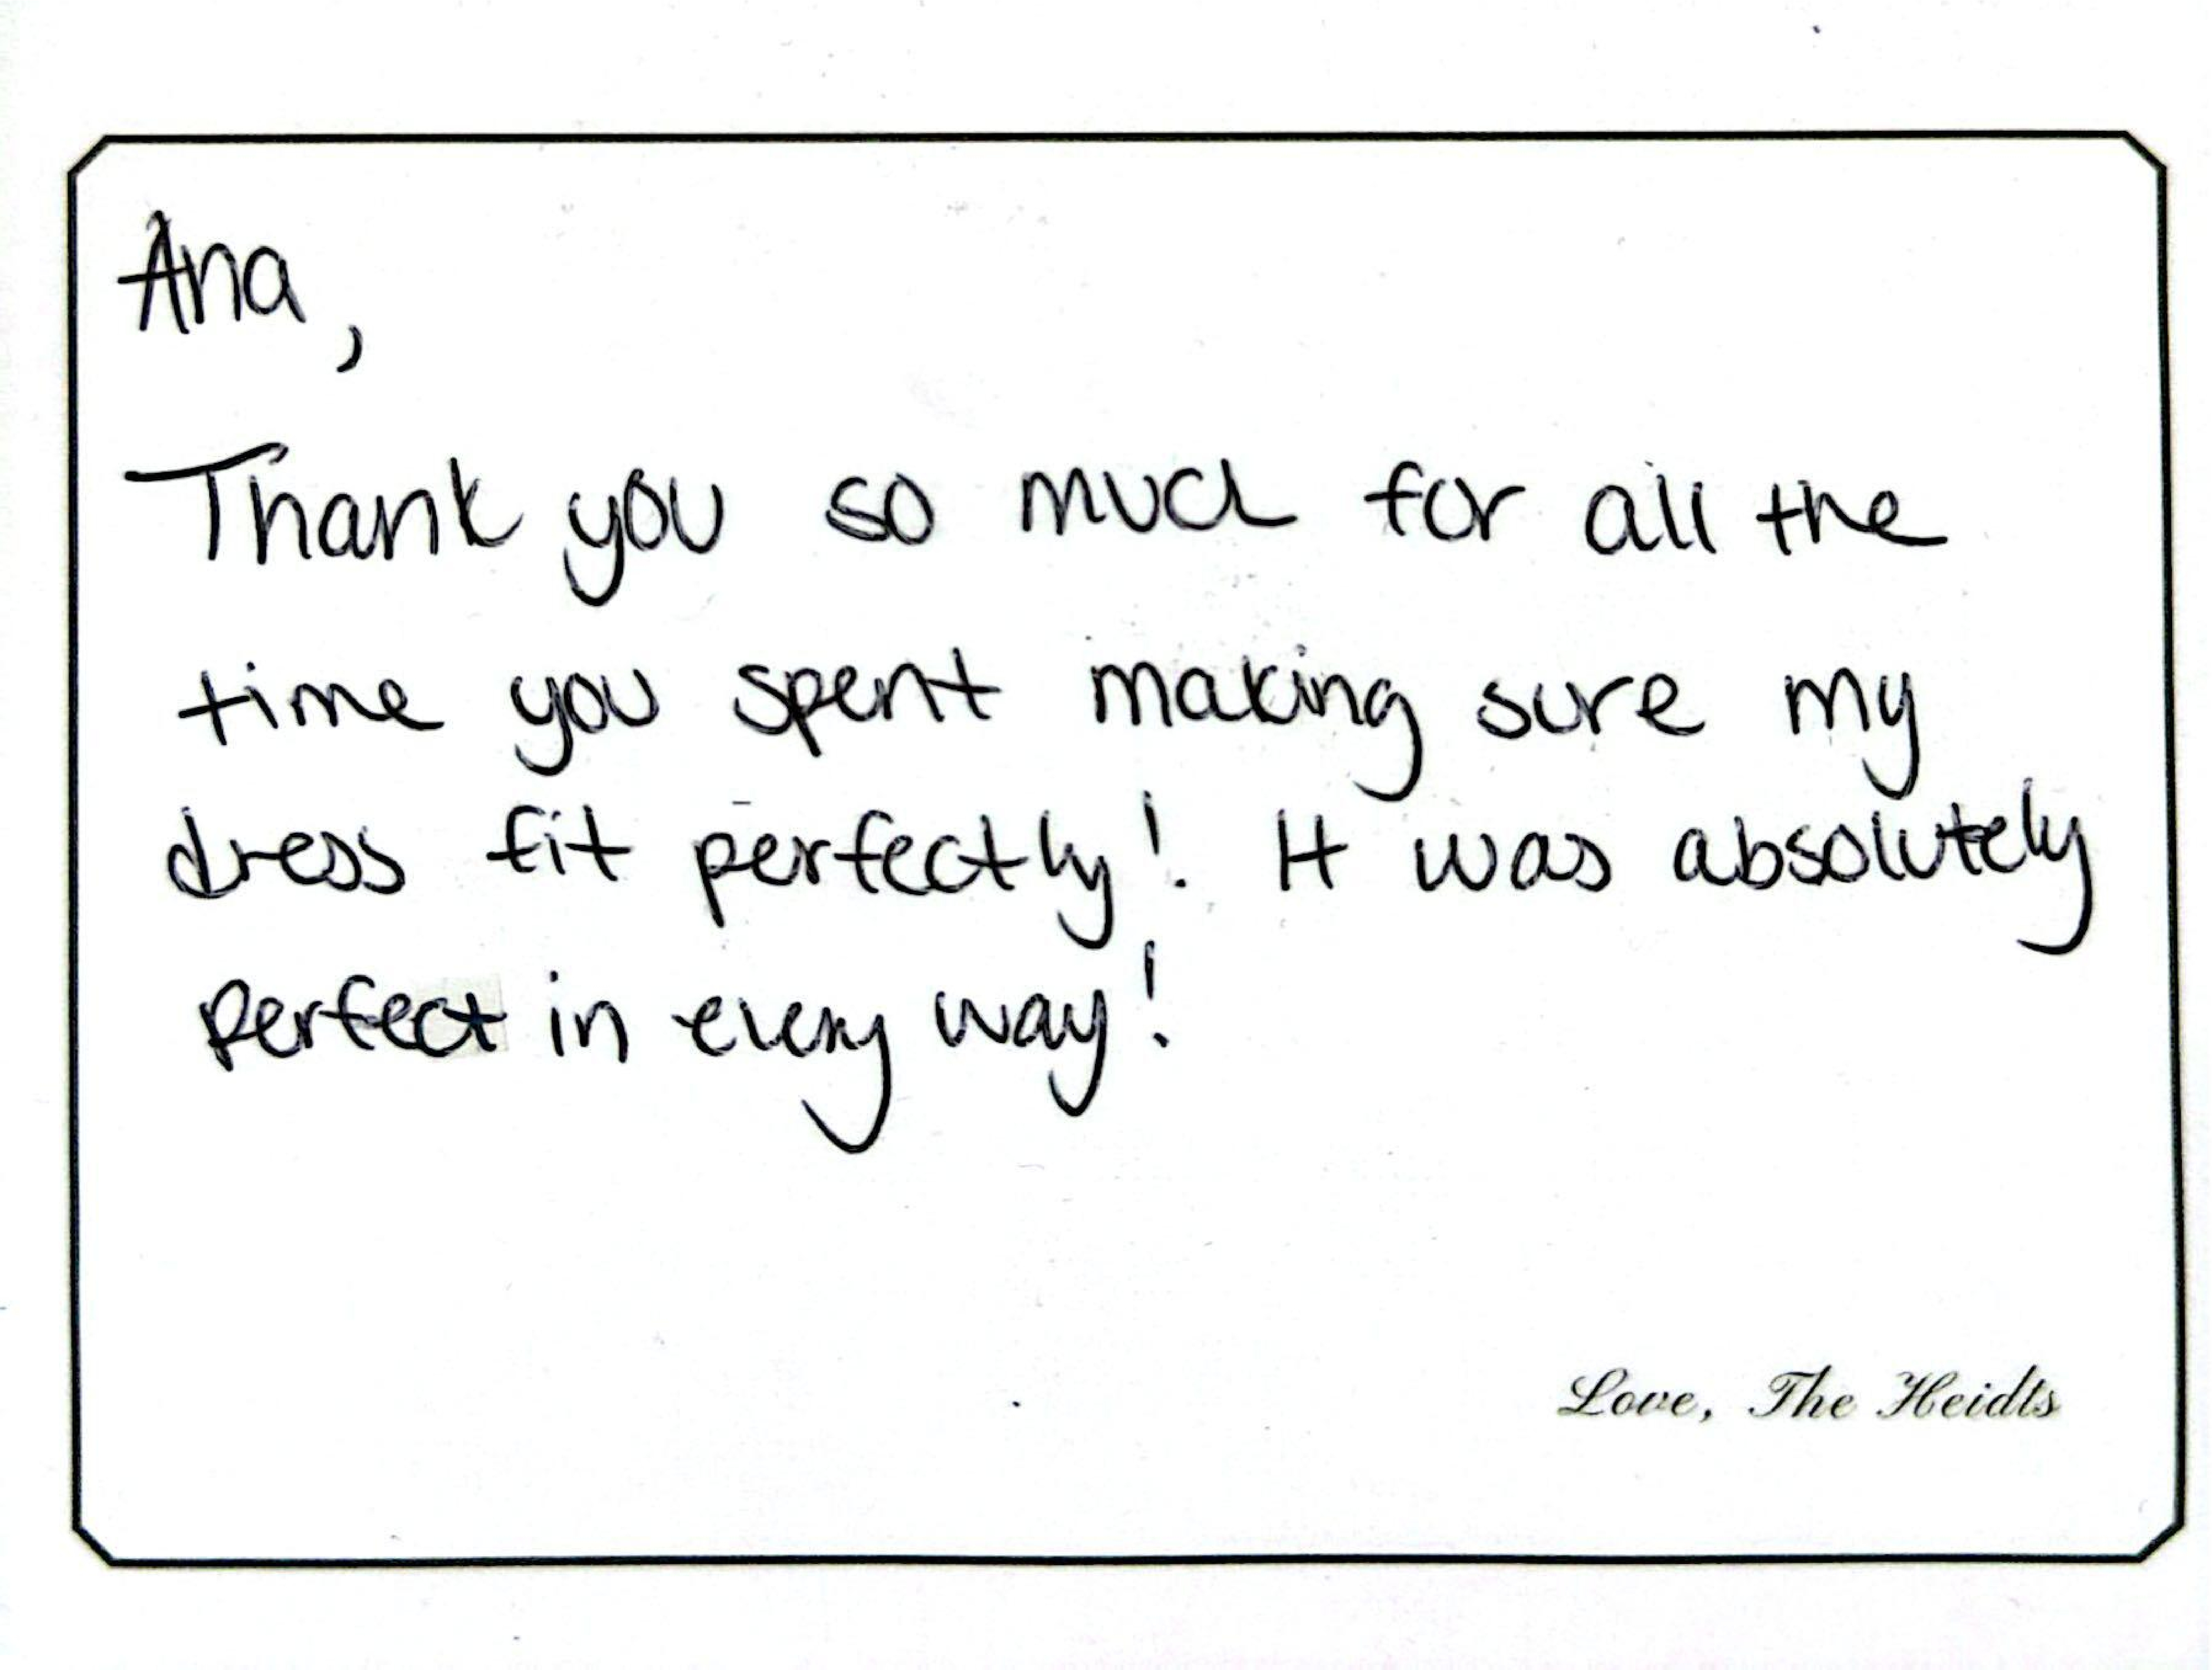 Ana,
Thank you so much for all the
time you spent making sure my
dress fit perfectly! It was absolutely
perfect in every way!
Love, The Heidts